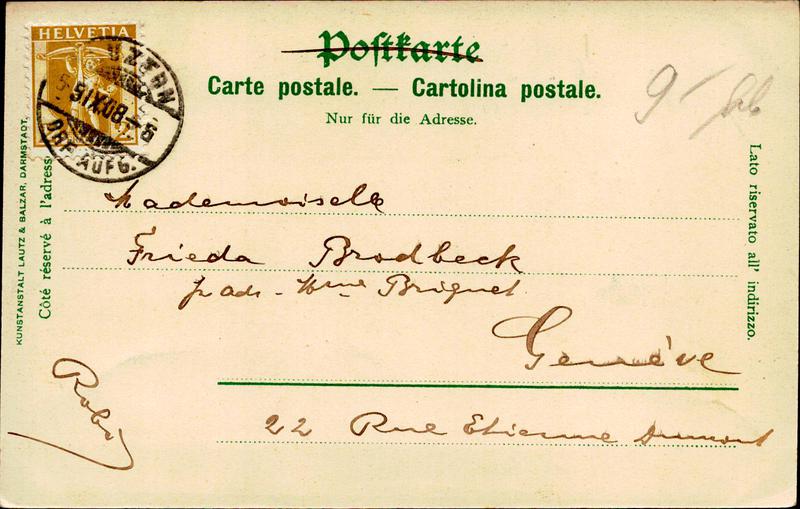 HELVETIA
LUZERN
5.IX.08.-5
BRF.AUFG.
Postkarte
Carte postale. — Cartolina postale.
Nur für die Adresse.
Mademoiselle
Frieda Brodbeck
p. adr. - Mme Briquet
Genève
22 Rue Etienne Dumont
KUNSTANSTALT LAUTZ & BALZAR, DARMSTADT.
Côté réservé à l'adresse
Lato riservato all' indirizzo.